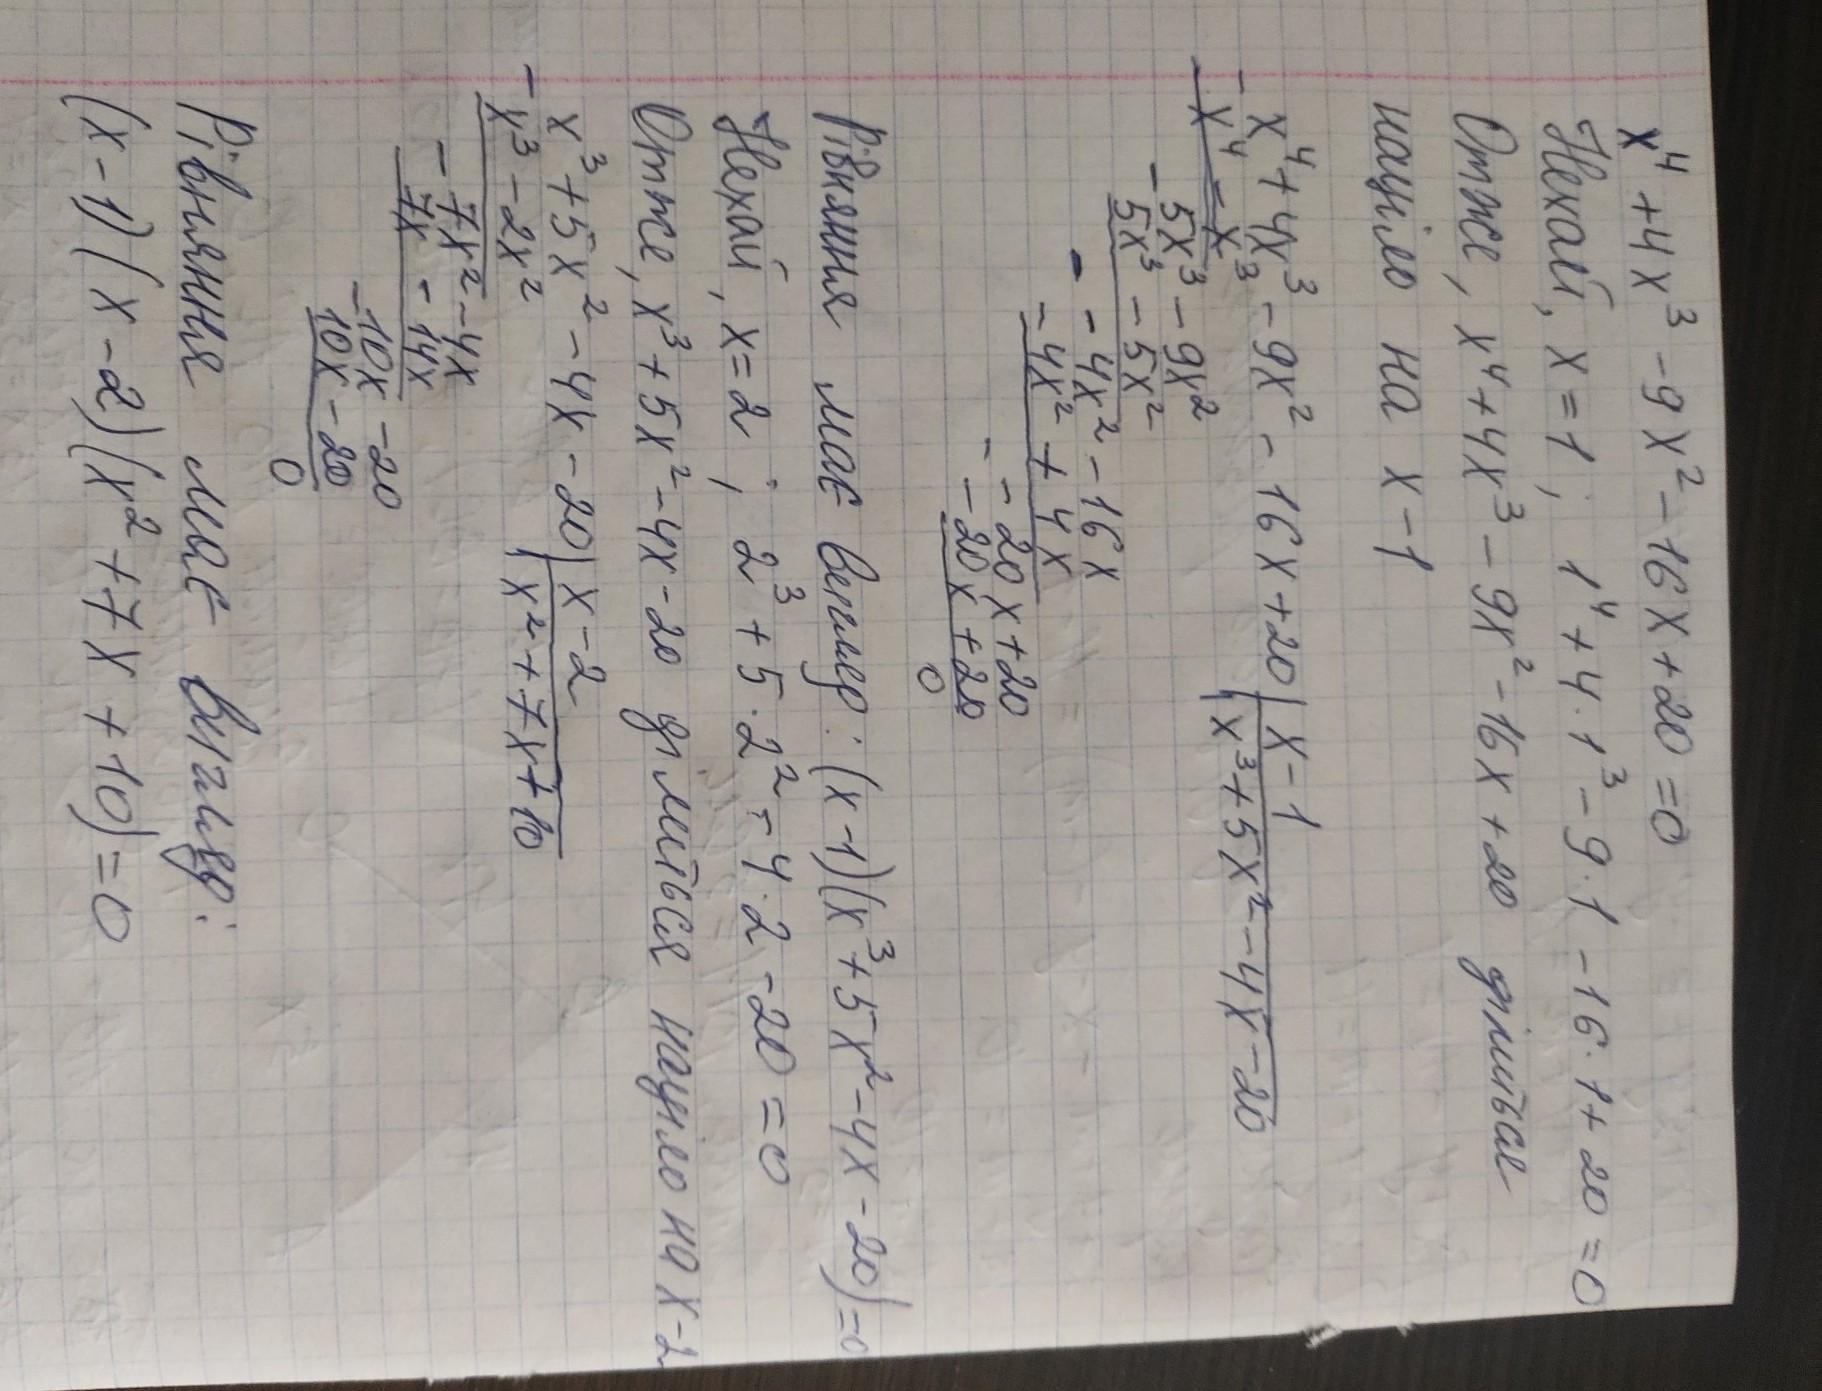 x⁴+4x³-9x²-16x+20=0
Нехай, x=1; 1⁴+4·1³-9·1-16·1+20=0
Отже, x⁴+4x³-9x²-16x+20 ділиться
націло на x-1
-x⁴+4x³-9x²-16x+20|x-1
x⁴-x³ |x³+5x²-4x-20
-5x³-9x²
5x³-5x²
- -4x²-16x
-4x²+4x
- -20x+20
-20x+20
0
Рівняння має вигляд: (x-1)(x³+5x²-4x-20)=0
Нехай, x=2; 2³+5·2²-4·2-20=0
Отже, x³+5x²-4x-20 ділиться націло на x-2
-x³+5x²-4x-20|x-2
x³-2x² |x²+7x+10
-7x²-4x
7x-14x
-10x-20
10x-20
0
Рівняння має вигляд:
(x-1)(x-2)(x²+7x+10)=0